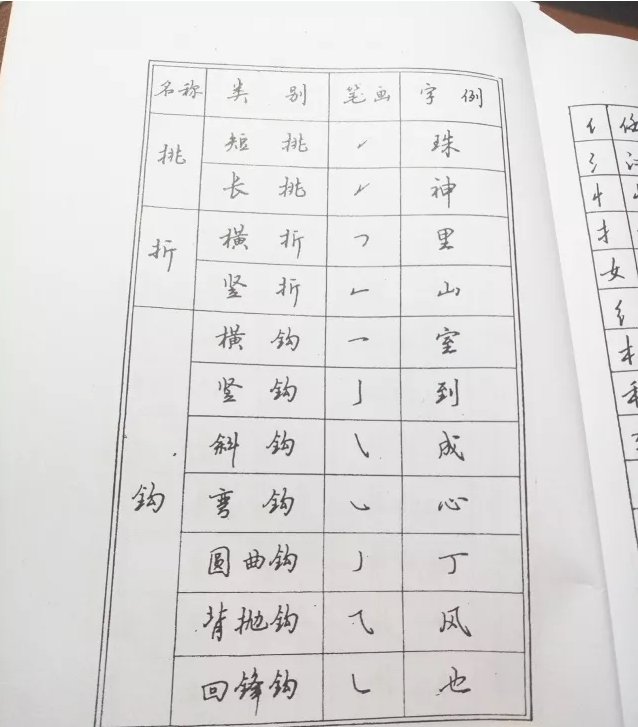 名称 类别 笔画 字例
挑 短挑 ㇀ 珠
长挑 ㇀ 神
折 横折 ㇕ 里
竖折 ㇗ 山
钩 横钩 ㇖ 室
竖钩 亅 到
斜钩 ㇂ 成
弯钩 ㇃ 心
圆曲钩 亅 丁
背抛钩 ⺄ 风
回锋钩 ㇄ 也
亻
氵
忄
扌
女
纟
木